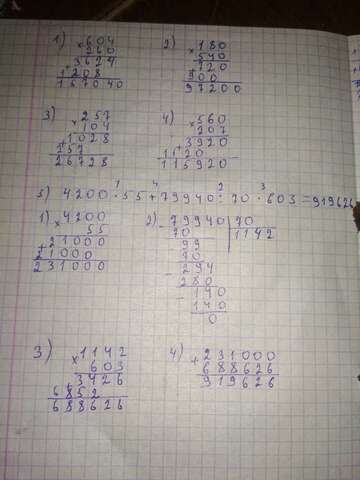 1) ×604
260
3624
+1208
157040
2) ×180
540
720
900
97200
3) ×257
104
1028
+257
26728
4) ×560
207
3920
+1120
115920
5) 4200 · 55 + 79940 : 70 · 603 = 919626
1 4 2 3
1) ×4200
55
21000
+21000
231000
2) - 79940 | 70
70 | 1142
99
70
- 294
280
- 140
140
0
3) ×1142
603
3426
+6852
688626
4) + 231000
688626
919626